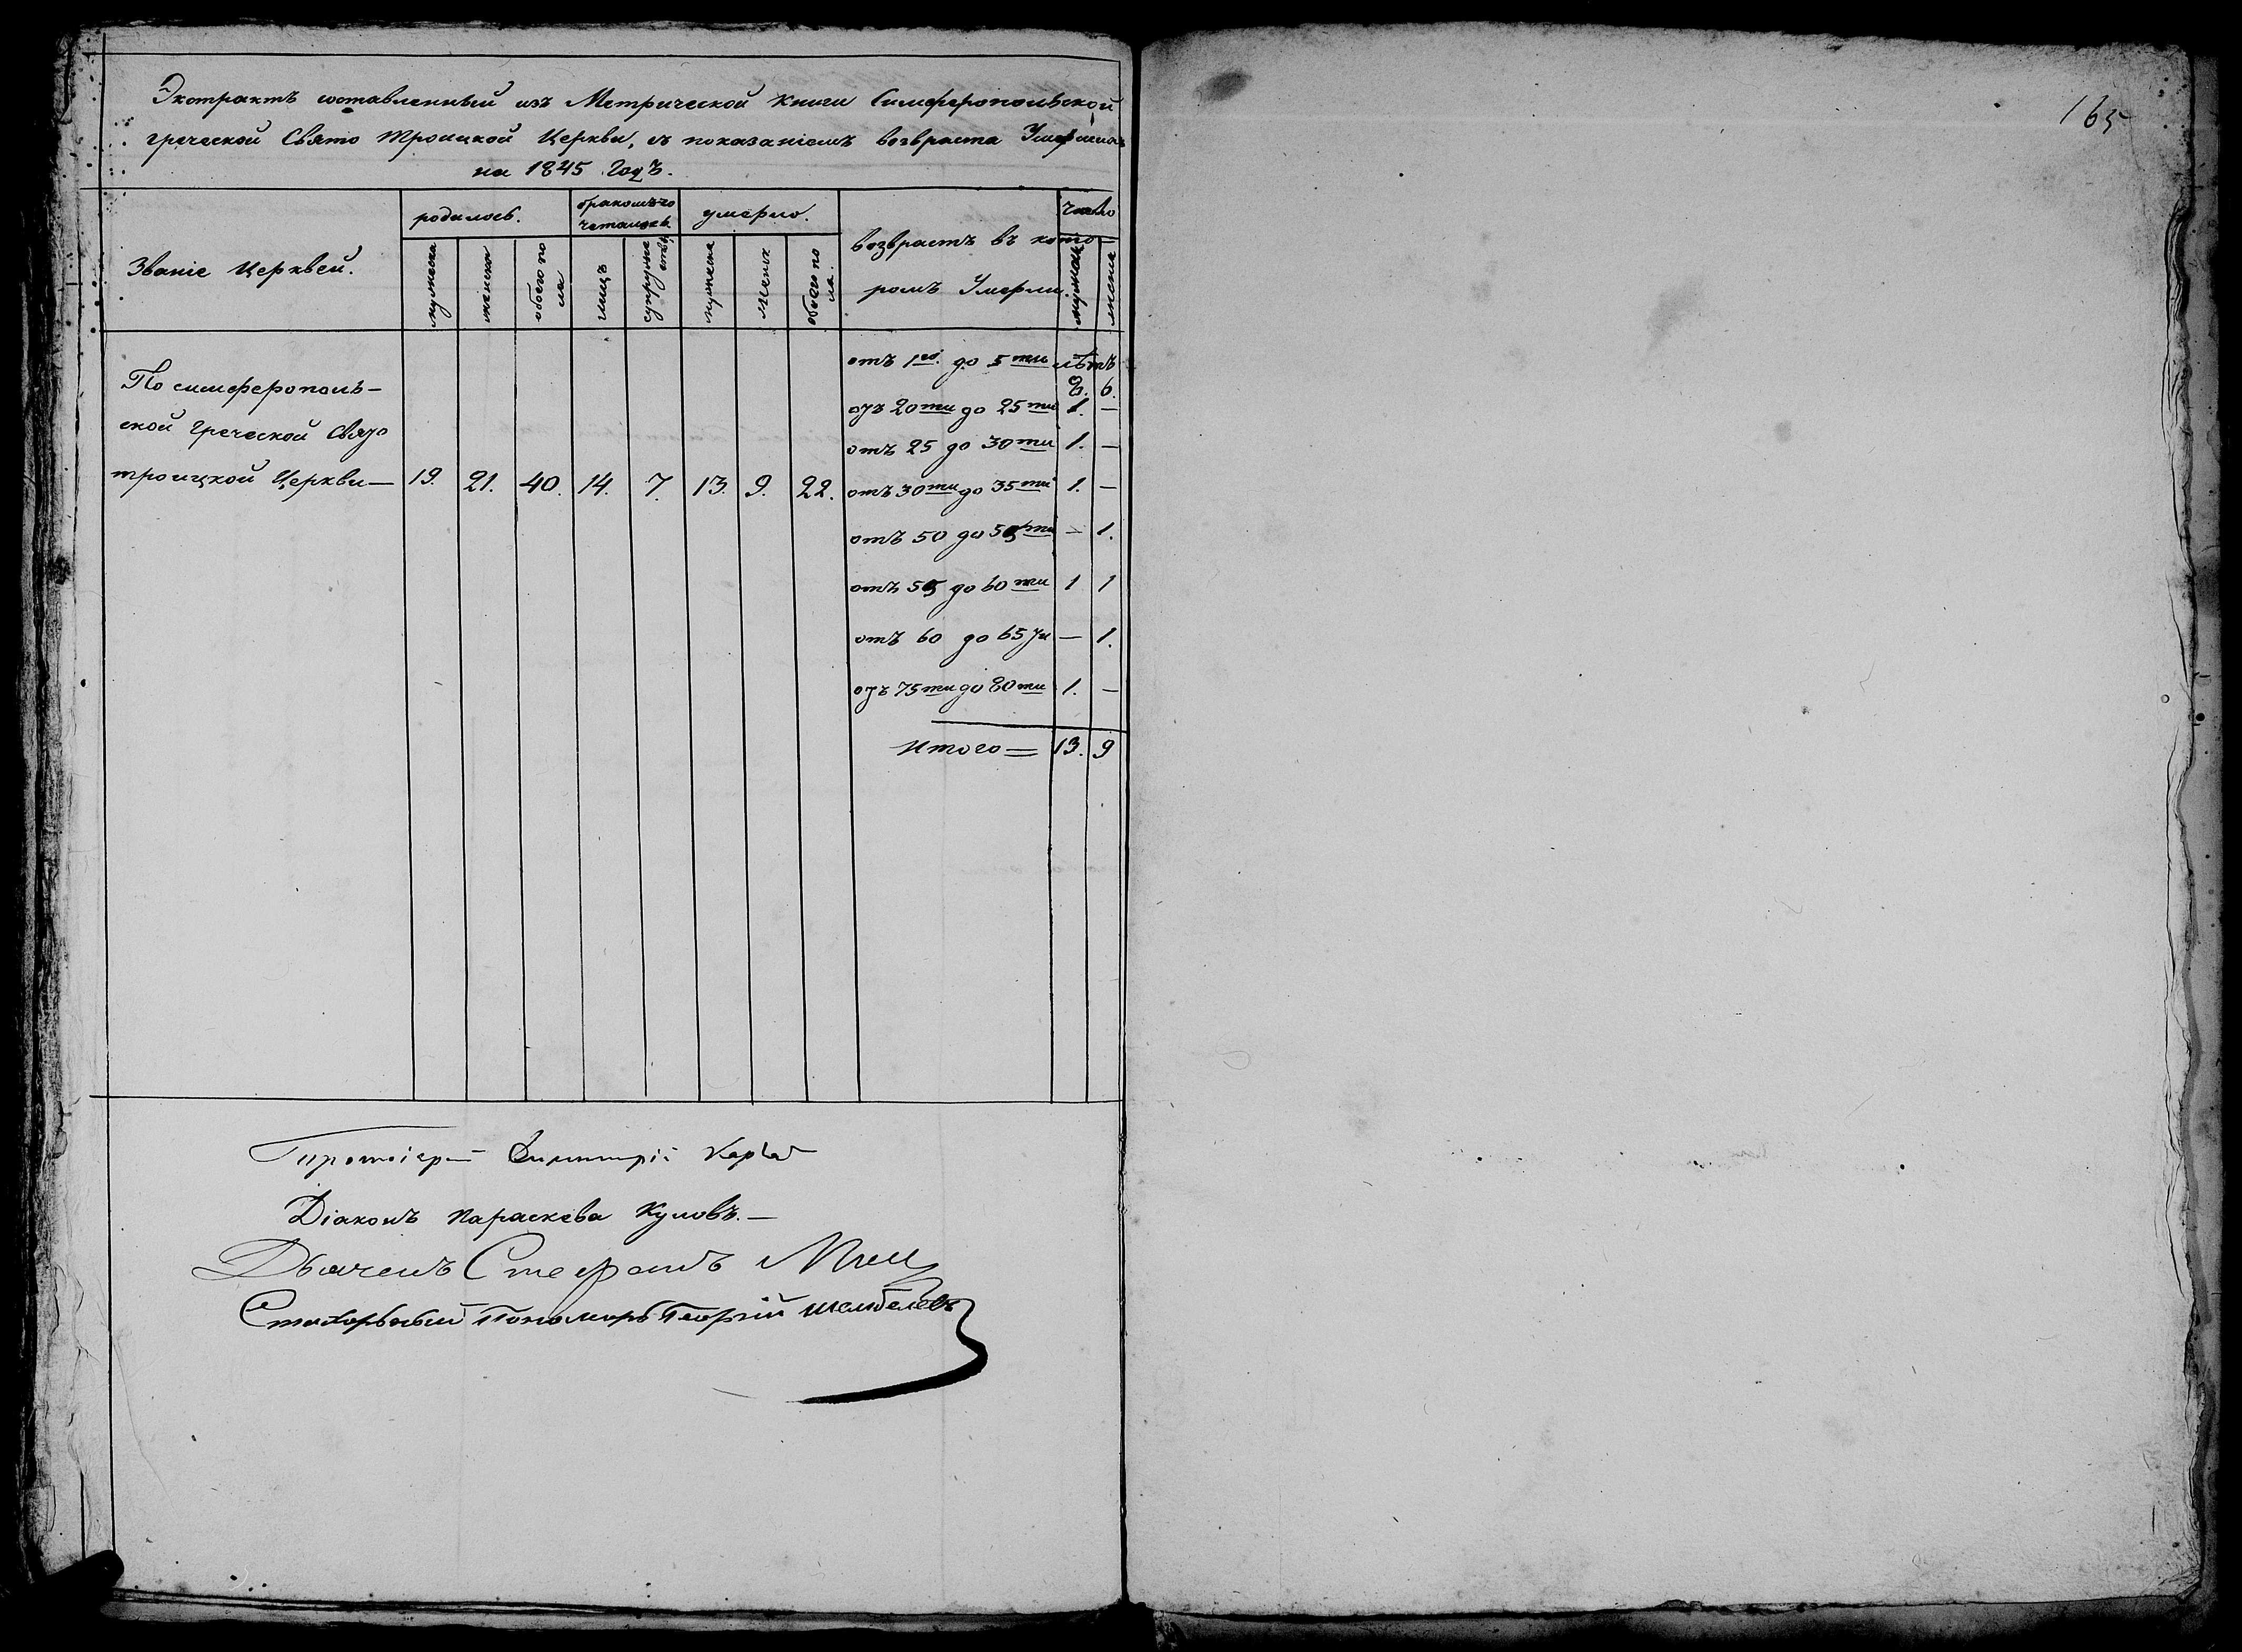 Экстрактъ составленный изъ Метрической книги Симферопольской
греческой Свято Троицкой Церкви, съ показаніемъ возвраста Умершихъ
на 1845 Годъ.
Званіе Церквей.
родилось.
бракомъ со
четалось
умерло.
возврастъ въ кото
ромъ Умерли.
число
мужеска
женска
обоего по
ла
лицъ
супруже
ствъ
мужеска
женска
обоего по
ла.
мужеска
женска
отъ 1го до 5ти лѣтъ
8. 6.
По симферополь-
ской Греческой Свято
троицкой Церкви — 19. 21. 40. 14. 7. 13. 9. 22.
отъ 20ти до 25ти 1. —
отъ 25 до 30ти 1. —
отъ 30ти до 35ти 1. —
отъ 50 до 55ти — 1.
отъ 55 до 60ти 1 1
отъ 60 до 65ти — 1.
отъ 75ти до 80ти 1. —
Итого = 13. 9
Протоіерей Димитрій
Діаконъ Параскева Куловъ. —
Дьячекъ Стефанъ
Пономарь Георгій
165